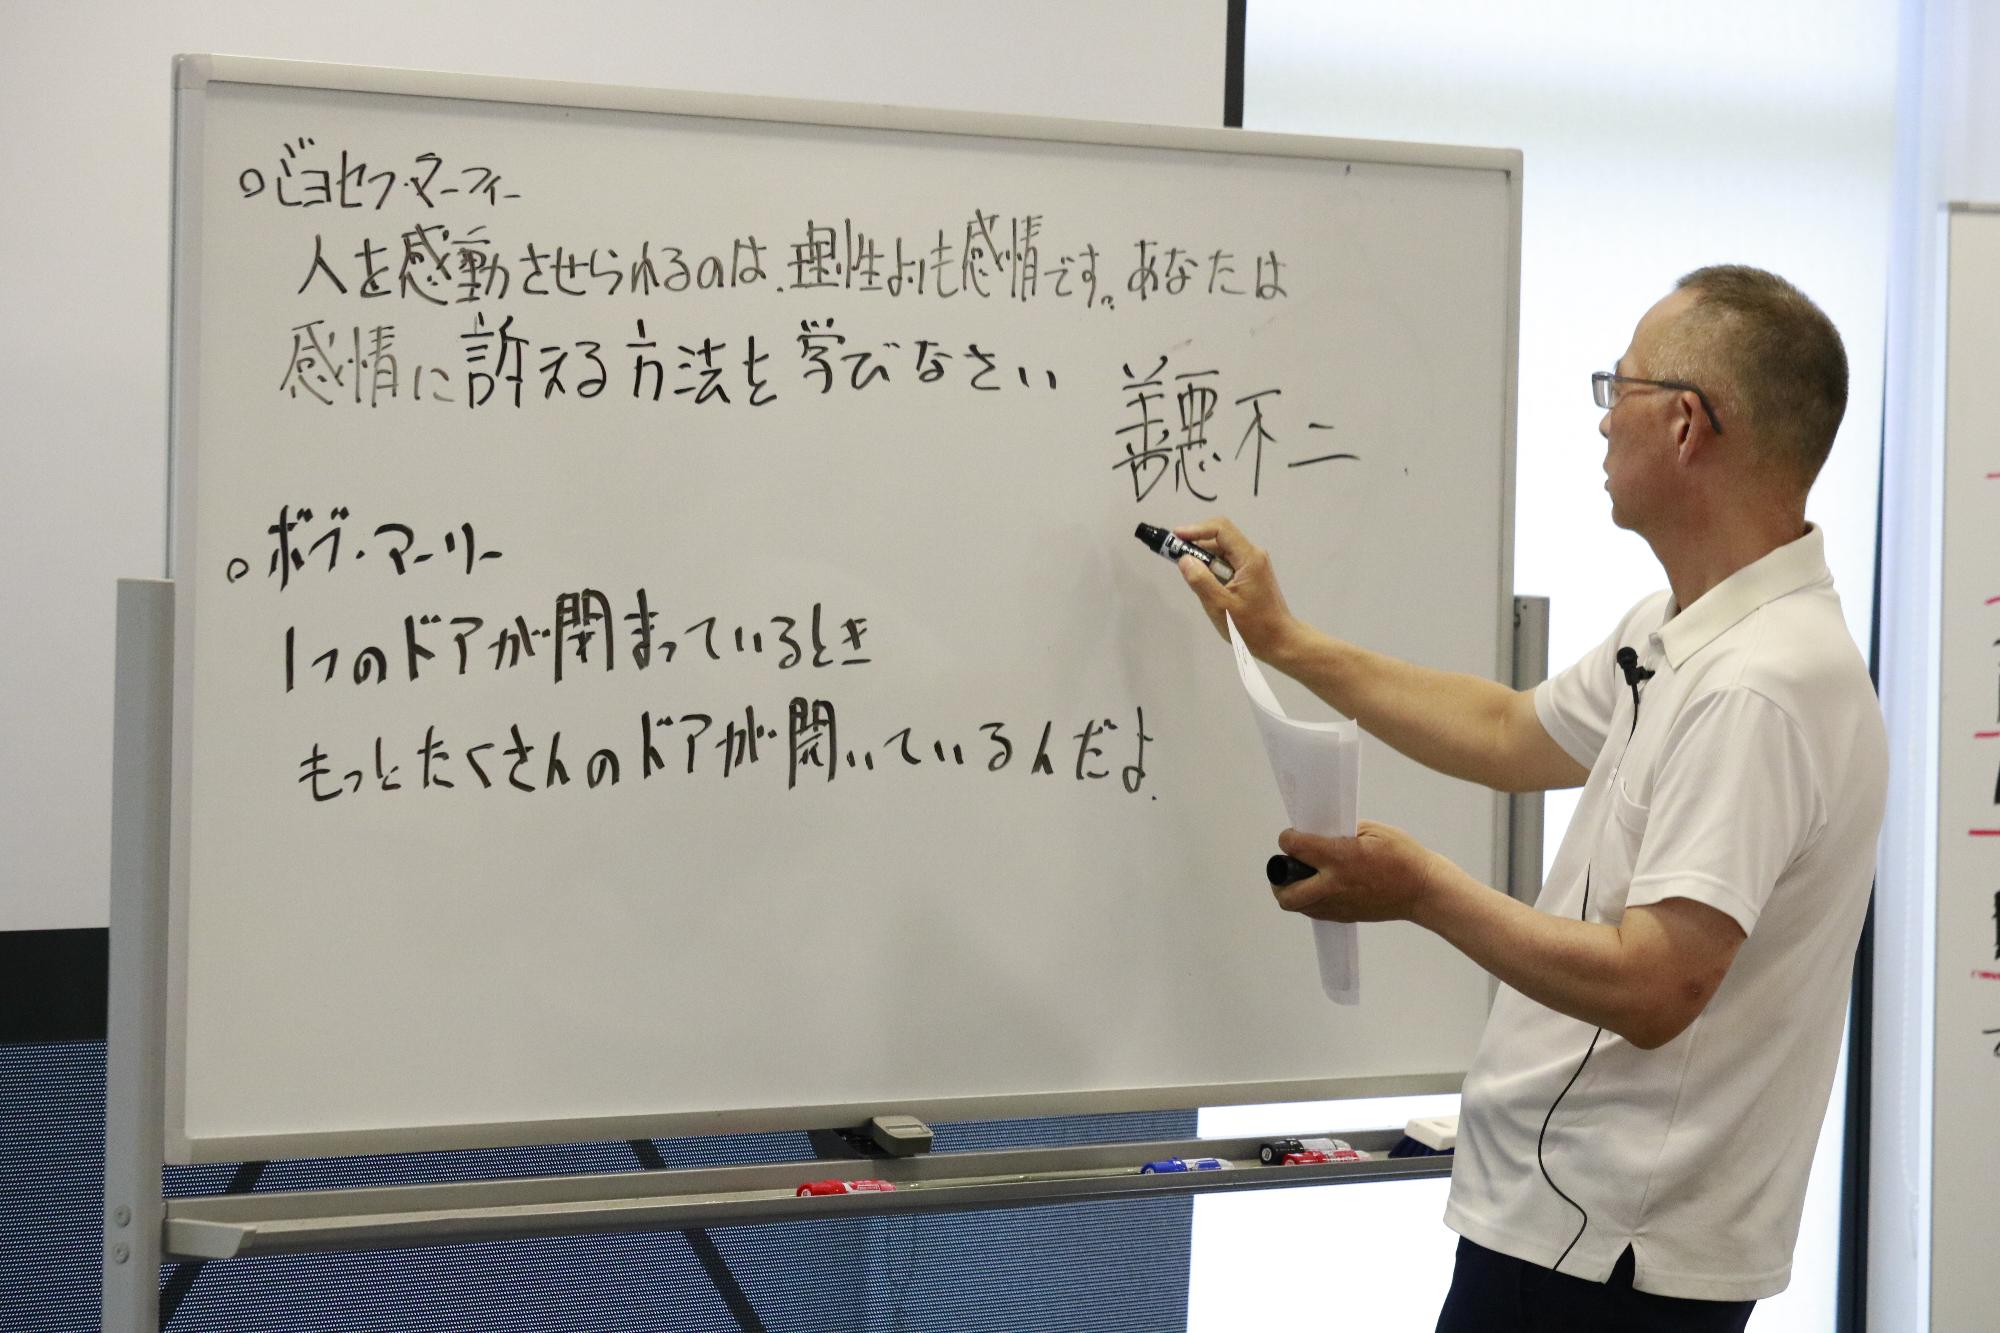 ○ジョセフ・マーフィー
人を感動させられるのは、理性よりも感情です。あなたは
感情に訴える方法を学びなさい
善悪不二
○ボブ・マーリー
1つのドアが閉まっているとき
もっとたくさんのドアが開いているんだよ.